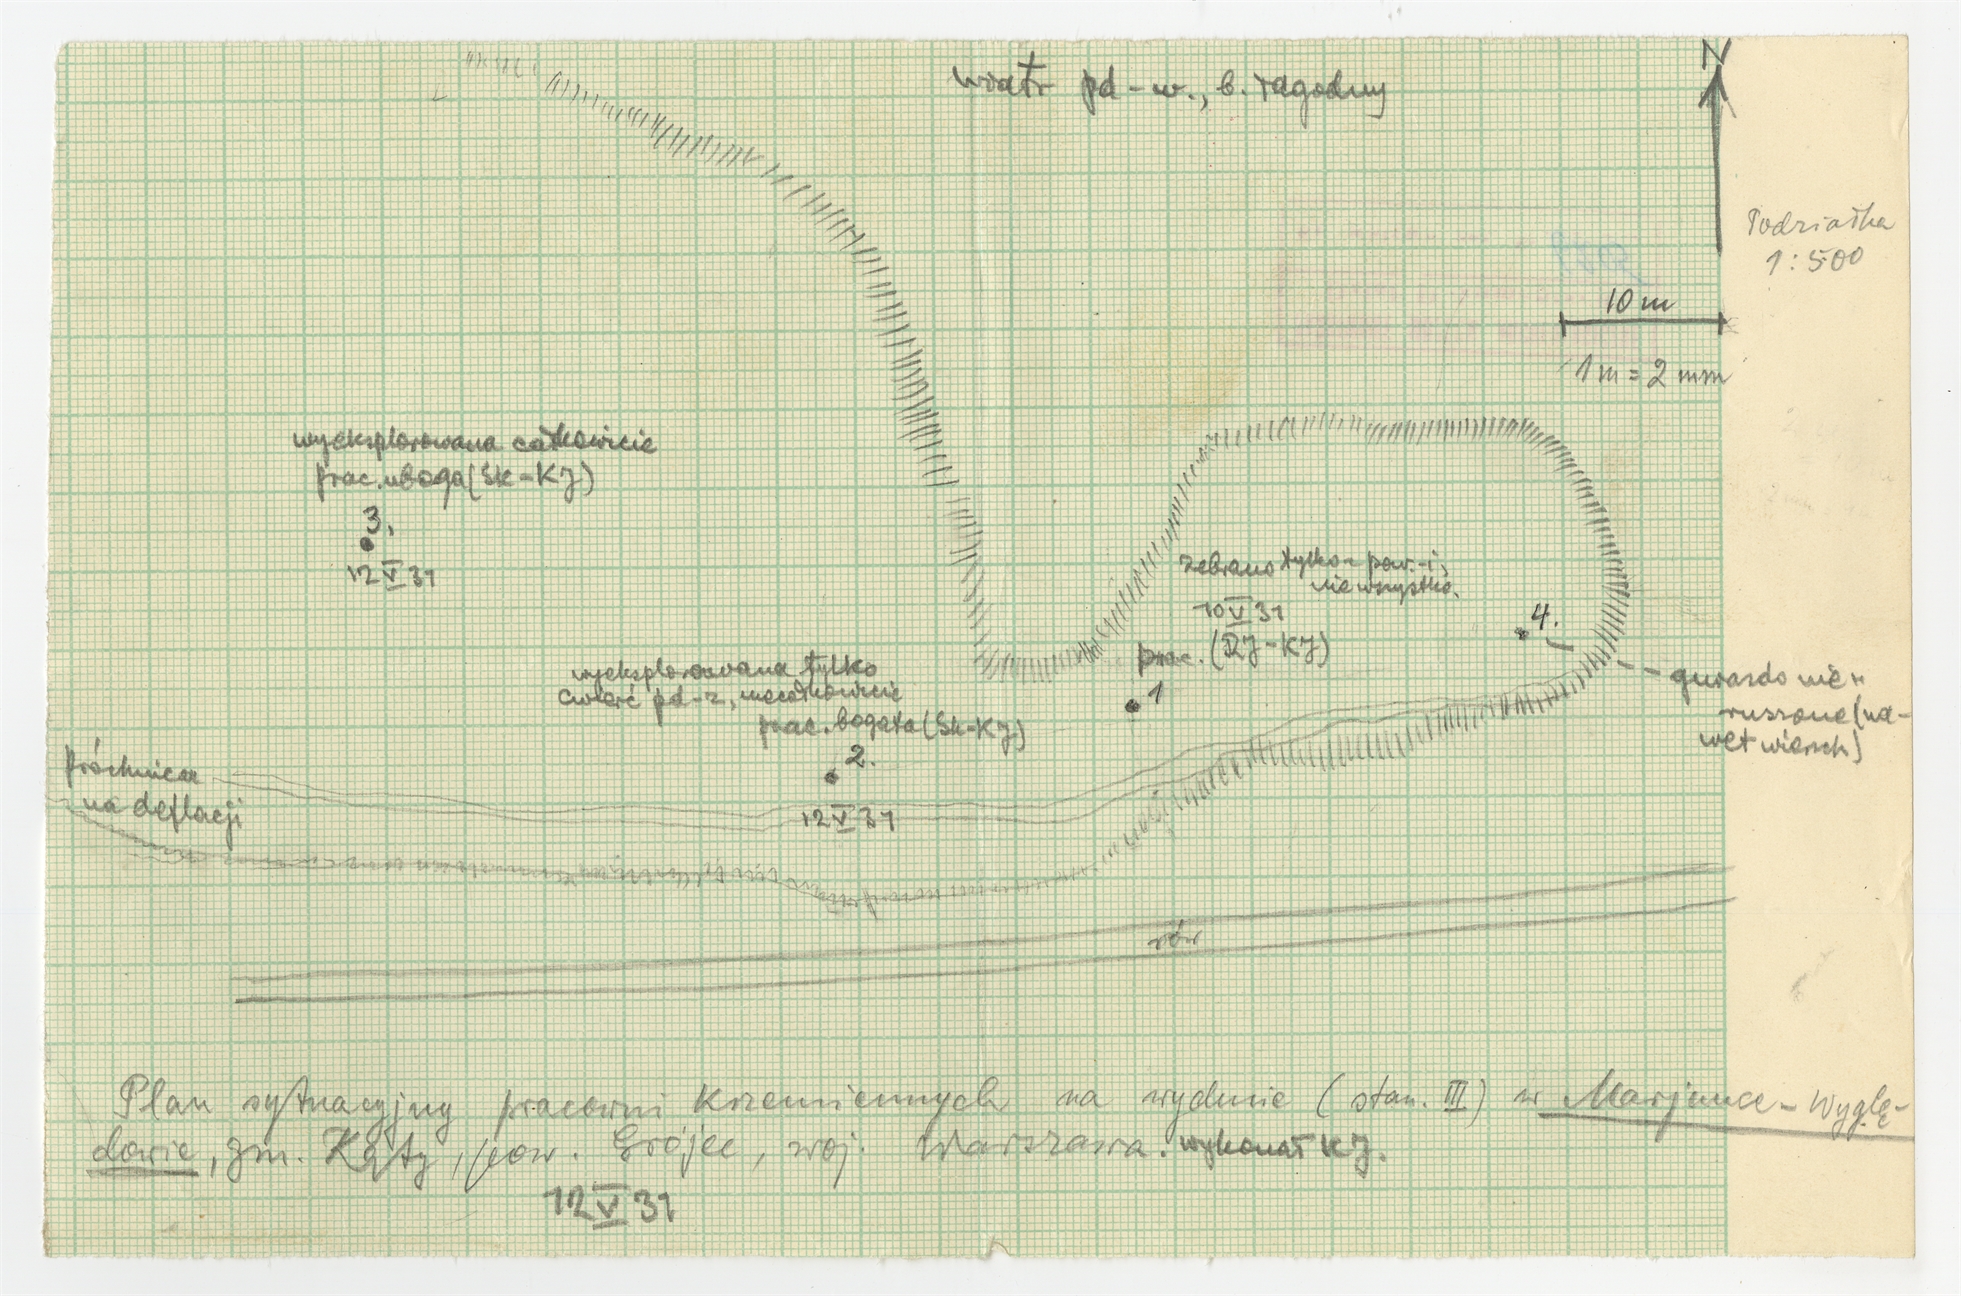 wiatr pd-w., b. łagodny
N
Podziałka
1:500
10 m
1 m = 2 mm
wyeksplorowana całkowicie
prac. uboga (Sk-KJ)
3.
12 V 31
zebrano tylko pow.-i,
nie wszystko.
10 V 31
prac. (RJ-KJ)
1
4.
gniazdo nie-
ruszone (na-
wet wierzch)
wyeksplorowana tylko
ćwierć pd-z, niecałkowicie
prac. bogata (Sk-KJ)
2.
12 V 31
Próchnica
na deflacji
rów
Plan sytuacyjny pracowni krzemiennych na wydmie (stan. III) w Marjance-Wyglę-
dowie, gm. Kąty, pow. Grójec, woj. Warszawa. wykonał KJ.
12 V 31